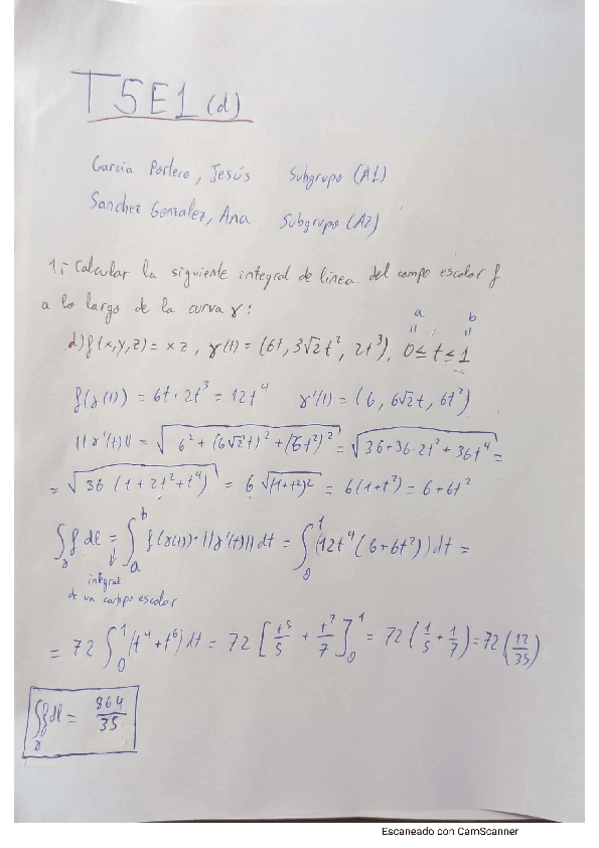 T5E1 (d)
García Portero, Jesús Subgrupo (A1)
Sanchez Gonzalez, Ana Subgrupo (A2)
1.- Calcular la siguiente integral de línea del campo escolar f
a lo largo de la curva γ:
a b
" "
d) f(x,y,z) = xz, γ(t) = (6t, 3√2t², 2t³), 0 ≤ t ≤ 1
f(γ(t)) = 6t · 2t³ = 12t⁴ γ'(t) = (6, 6√2t, 6t²)
||γ'(t)|| = √(6² + (6√2t)² + (6t²)²) = √(36 + 36·2t² + 36t⁴) =
= √(36 (1 + 2t² + t⁴)) = 6 √((1+t²)²) = 6(1+t²) = 6+6t²
∫_γ f dl = ∫_a^b f(γ(t)) · ||γ'(t)|| dt = ∫_0^1 (12t⁴(6+6t²)) dt =
↓
integral
de un campo escolar
= 72 ∫_0^1 (t⁴ + t⁶) dt = 72 [t⁵/5 + t⁷/7]_0^1 = 72 (1/5 + 1/7) = 72 (12/35)
∫_γ f dl = 864/35
Escaneado con CamScanner